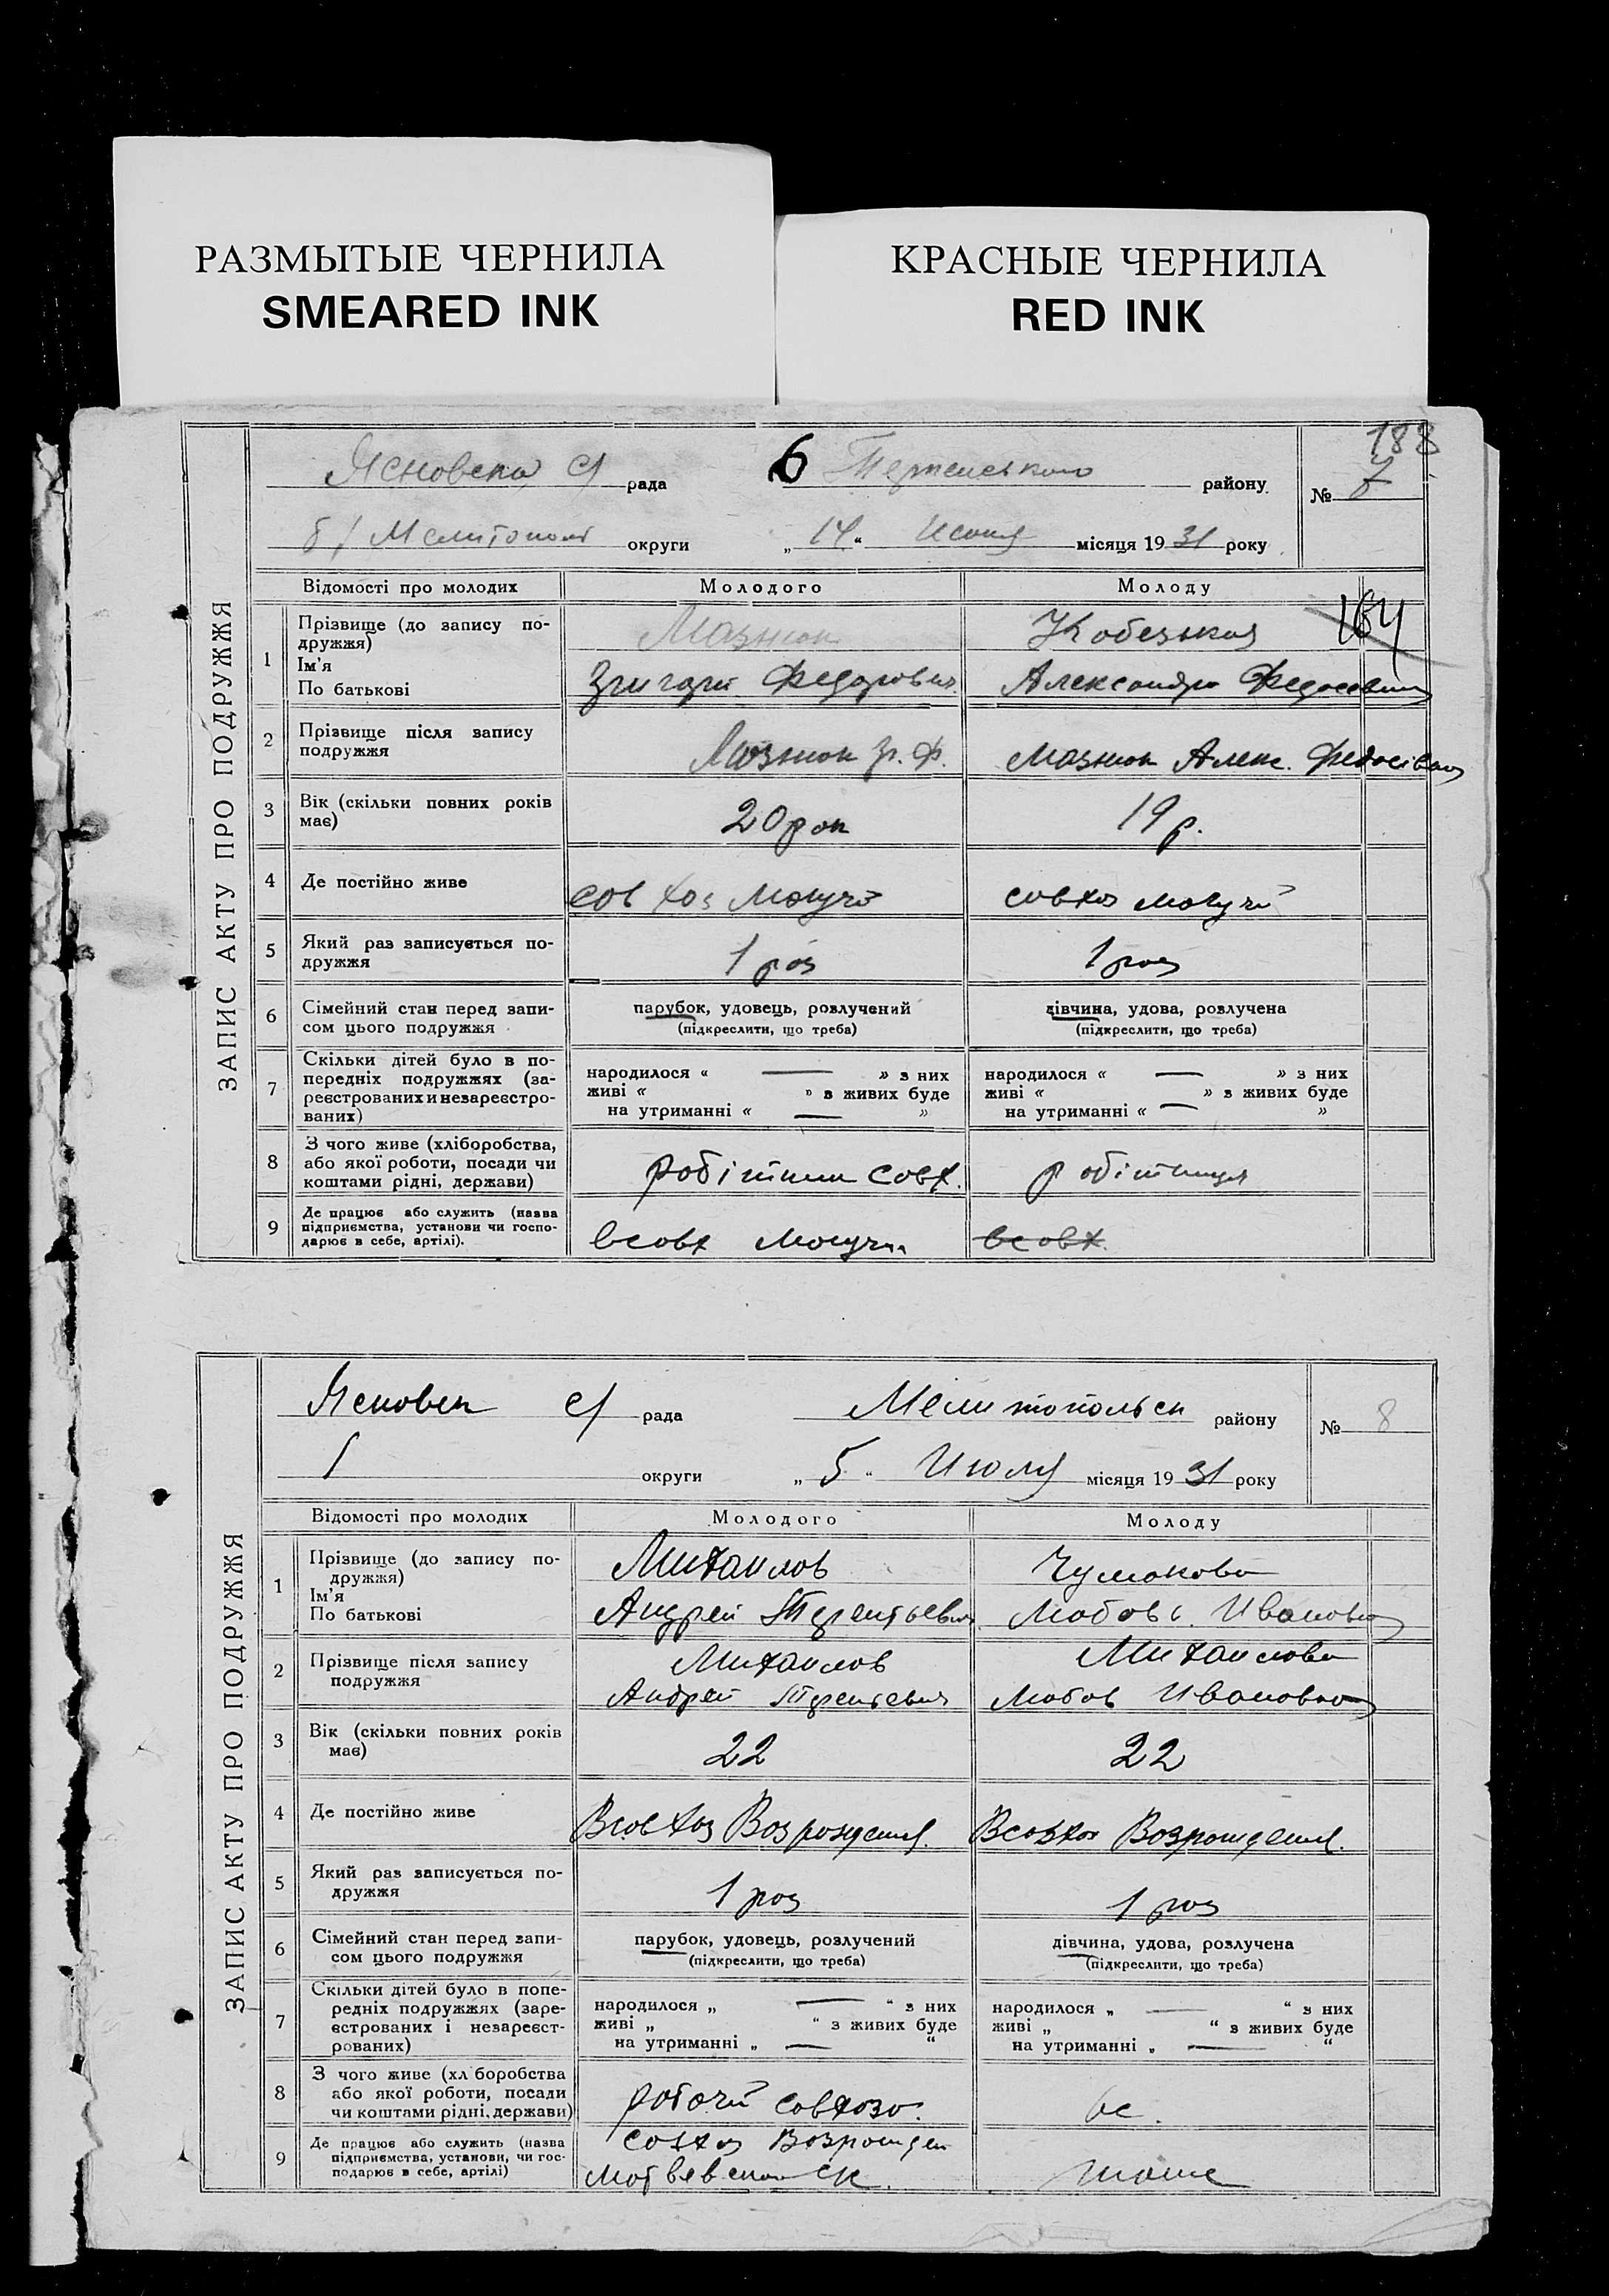 РАЗМЫТЫЕ ЧЕРНИЛА
SMEARED INK
КРАСНЫЕ ЧЕРНИЛА
RED INK
188
ЗАПИС АКТУ ПРО ПОДРУЖЖЯ
с/ рада 6 району № 7
б/ Мелитопол округи „ 14 “ місяця 19 31 року
Відомості про молодих Молодого Молоду
184
1 Прізвище (до запису подружжя) Мазнюк
Ім'я
По батькові Григорій Федорович Александра
2 Прізвище після запису подружжя Мазнюк Гр. Ф. Мазнюк Алекс. Федосівна
3 Вік (скільки повних років має) 20 рок 19 р.
4 Де постійно живе совхоз Могучий совхоз Могучий
5 Який раз записується подружжя 1 раз 1 раз
6 Сімейний стан перед записом цього подружжя парубок, удовець, розлучений дівчина, удова, розлучена
(підкреслити, що треба) (підкреслити, що треба)
7 Скільки дітей було в попередніх подружжях (зареєстрованих и незареєстрованих)
народилося « — » з них народилося « — » з них
живі « » з живих буде живі « » з живих буде
на утриманні « — » на утриманні « — »
8 З чого живе (хліборобства, або якої роботи, посади чи коштами рідні, держави) робітник совх. робітниця
9 Де працює або служить (назва підприємства, установи чи господарює в себе, артілі). всовх Могучий всовх.
ЗАПИС АКТУ ПРО ПОДРУЖЖЯ
Ясновск с/ рада Мелитопольск району № 8
округи „ 5 “ Июля місяця 19 31 року
Відомості про молодих Молодого Молоду
1 Прізвище (до запису подружжя) Михаилов Чумакова
Ім'я
По батькові Андрей Терентьевич Любовь Ивановна
2 Прізвище після запису подружжя Михаилов Михаилова
Андрей Терентевич Любов Ивановна
3 Вік (скільки повних років має) 22 22
4 Де постійно живе Всовхоз Возрождения. Всовхоз Возрождения.
5 Який раз записується подружжя 1 раз 1 раз
6 Сімейний стан перед записом цього подружжя парубок, удовець, розлучений дівчина, удова, розлучена
(підкреслити, що треба) (підкреслити, що треба)
7 Скільки дітей було в попередніх подружжях (зареєстрованих і незареєстрованих)
народилося „ — “ з них народилося „ — “ з них
живі „ “ з живих буде живі „ “ з живих буде
на утриманні „ — “ на утриманні „ — “
8 З чого живе (хл боробства або якої роботи, посади чи коштами рідні, держави) рабочий совхоза.
9 Де працює або служить (назва підприємства, установи, чи господарює в себе, артілі) совхоз Возрожден
тоже